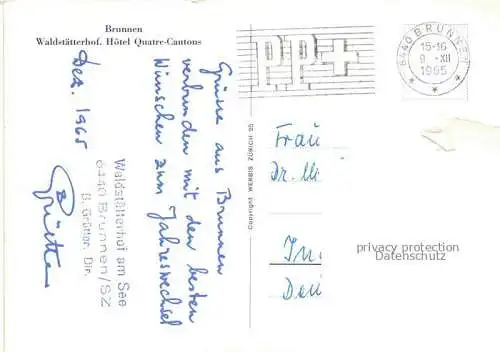 Brunnen
Waldstätterhof. Hôtel Quatre-Cantons
Grüsse aus Brunnen
verbunden mit den besten
Wünschen zum Jahreswechsel
Dez. 1965
B Grütter
Waldstätterhof am See
6440 Brunnen/SZ
B. Grütter, Dir.
Copyright WERBIS ZÜRICH 55
PP+
6440 BRUNNEN
15-16
9.-XII
1965
Frau
Dr.
privacy protection
Datenschutz